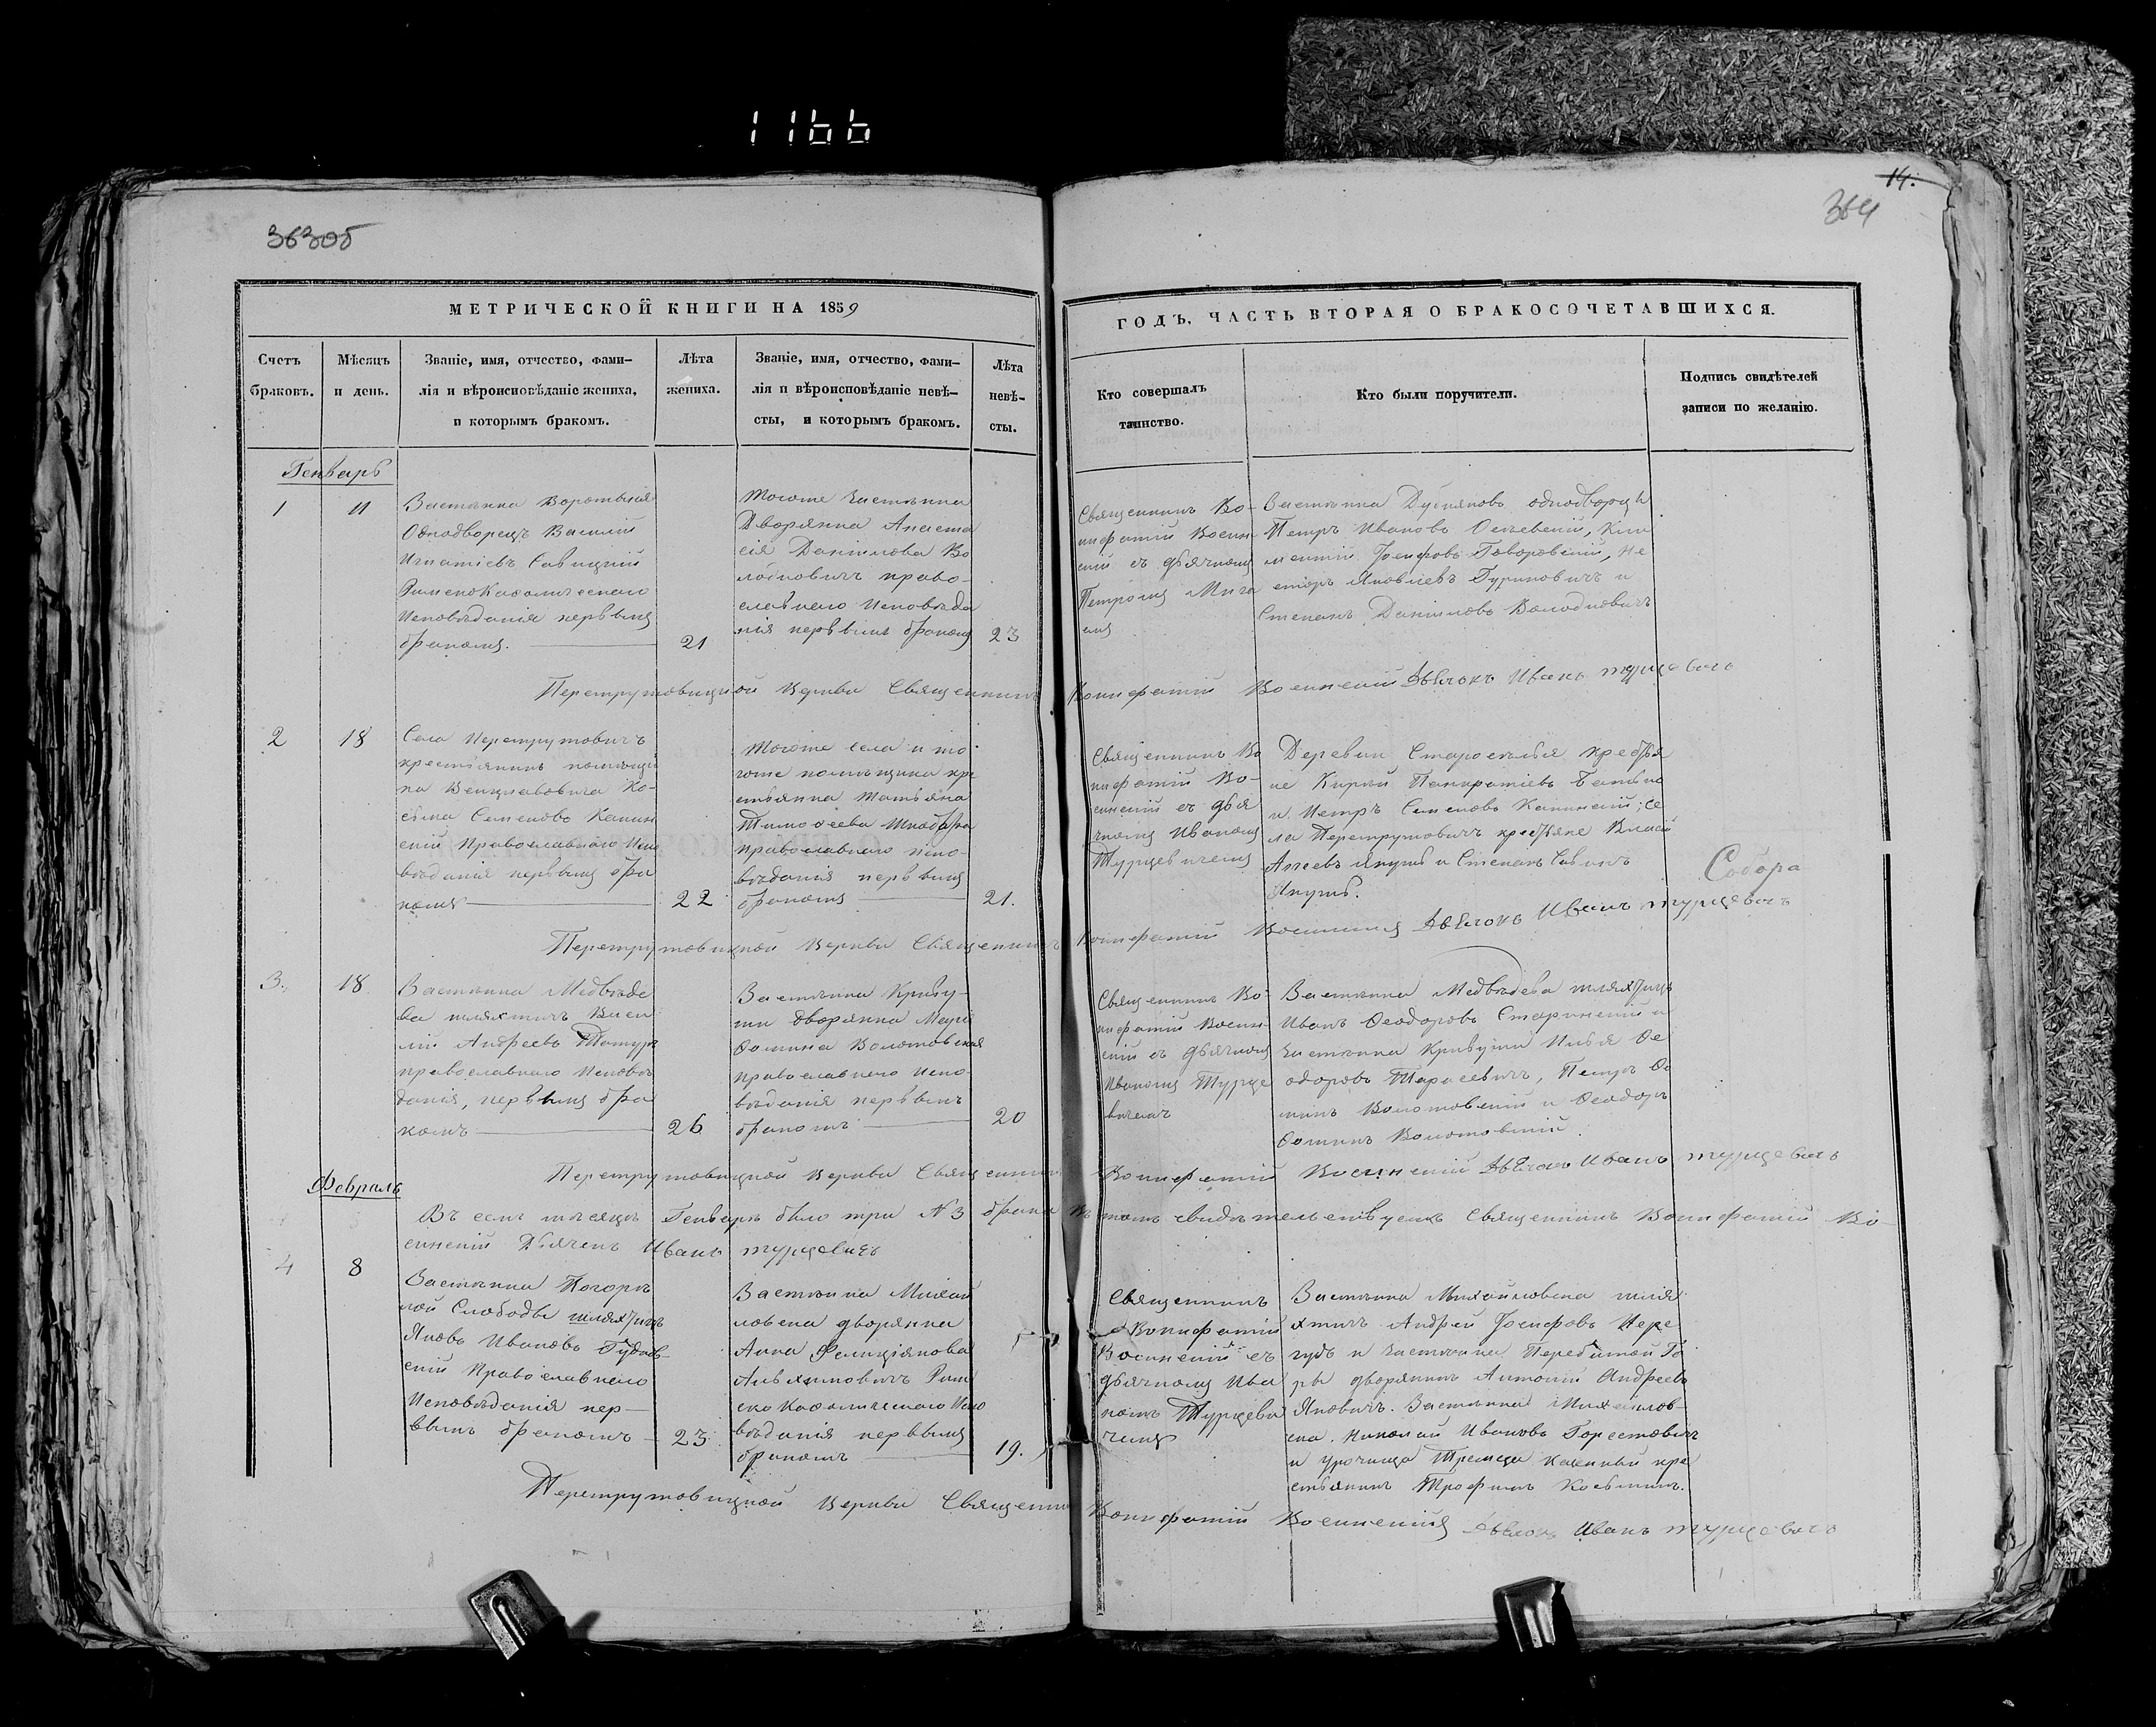 1166
363об
14.
364
МЕТРИЧЕСКОЙ КНИГИ НА 1859
ГОДЪ, ЧАСТЬ ВТОРАЯ О БРАКОСОЧЕТАВШИХСЯ.
Счетъ
браковъ.
Мѣсяцъ
и день.
Званіе, имя, отчество, фами-
лія и вѣроисповѣданіе жениха,
и которымъ бракомъ.
Лѣта
жениха.
Званіе, имя, отчество, фами-
лія и вѣроисповѣданіе невѣ-
сты, и которымъ бракомъ.
Лѣта
невѣ-
сты.
Кто совершалъ
таинство.
Кто были поручители.
Подпись свидѣтелей
записи по желанію.
Генварь
1
11
Застѣнка
Однодворецъ Василій
Игнатіевъ Савицкій
Римско Католическаго
Исповѣданія первымъ
бракомъ.
21
Тогоже застѣнка
Дворянка Анаста
сія Данілова Во
лодковичъ право-
славнаго исповѣда
нія первымъ бракомъ
23
Священникъ Во-
нифатій Восин-
скій съ дьячкомъ
Петромъ
Застѣнка однодворцы
Петръ Ивановъ Кли
ментій Іосифовъ Говоровскій, Не
сторъ Яковлевъ Гуриновичъ и
Степанъ Даніиловъ Володковичъ
Перетрутовицкой Церкви Священникъ Вонифатій Восинскій Дьячокъ Иванъ Турцевичъ
2
18
Села Перетрутовичъ
крестьянинъ помѣщи
ка Венцлавовича Ко-
сьма Семеновъ Капин
скій Православнаго Испо
вѣданія первымъ бра
комъ
22
Тогоже села и то-
гоже помѣщика кре
стьянка Татьяна
Тимоѳеева
православнаго испо-
вѣданія первымъ
бракомъ
21.
Священникъ Во
нифатій Во-
синскій съ дья
чкомъ Иваномъ
Турцевичемъ
Деревни Староселья крестья
не Кирилъ Панкратіевъ
и Петръ Семеновъ Капинскій; се
ла Перетрутовичъ крестьяне Власій
Якушъ и Степанъ Савинъ
Якушъ.
Собора
Перетрутовицкой Церкви Священникъ Вонифатій Восинскій Дьячокъ Иванъ Турцевичъ
3.
18
Застѣнка Медвѣде
ва шляхтичъ Васи
лій Андреевъ
православнаго исповѣ
данія, первымъ бра
комъ
26
Застѣнка Криву-
ши дворянка Марія
Ѳомина Волотовская
православнаго испо-
вѣданія первымъ
бракомъ
20
Священникъ Во-
нифатій Восин-
скій съ дьячкомъ
Иваномъ Турце
вичемъ
Застѣнка Медвѣдева шляхтичъ
Иванъ Ѳеодоровъ Старинскій и
застѣнка Кривуши Илья Ѳе
одоровъ Тарасевичъ, Петръ Ѳо
минъ Волотовскій и Ѳеодоръ
Ѳоминъ Волотовскій.
Перетрутовицкой Церкви Священникъ Вонифатій Восинскій Дьячокъ Иванъ Турцевичъ
Февраль
Въ семъ мѣсяцѣ Генварѣ было три № 3 брака въ томъ свидѣтельствуемъ Священникъ Вонифатій Во-
синскій Дьячокъ Иванъ Турцевичъ
4
8
Застѣнка Погорѣ
лой Слободы шляхтичъ
Яковъ Ивановъ
скій Православнаго
Исповѣданія пер-
вымъ бракомъ
23
Застѣнка Михай
ловска дворянка
Анна Фелиціянова
Рим
ско Католическаго Испо
вѣданія первымъ
бракомъ
19.
Священникъ
Вонифатій
Восинскій съ
дьячкомъ Ива
номъ Турцеви
чемъ
Застѣнка Михайловска шля
хтичъ Андрей Іосифовъ
и застѣнка Го
ры дворянинъ Антоній Андреевъ
Яновичъ. Застѣнка Михайлов-
ска. Николай Ивановъ
и урочища казенный кре
стьянинъ Трофимъ Косьминъ.
Перетрутовицкой Церкви Священникъ Вонифатій Восинскій Дьячокъ Иванъ Турцевичъ